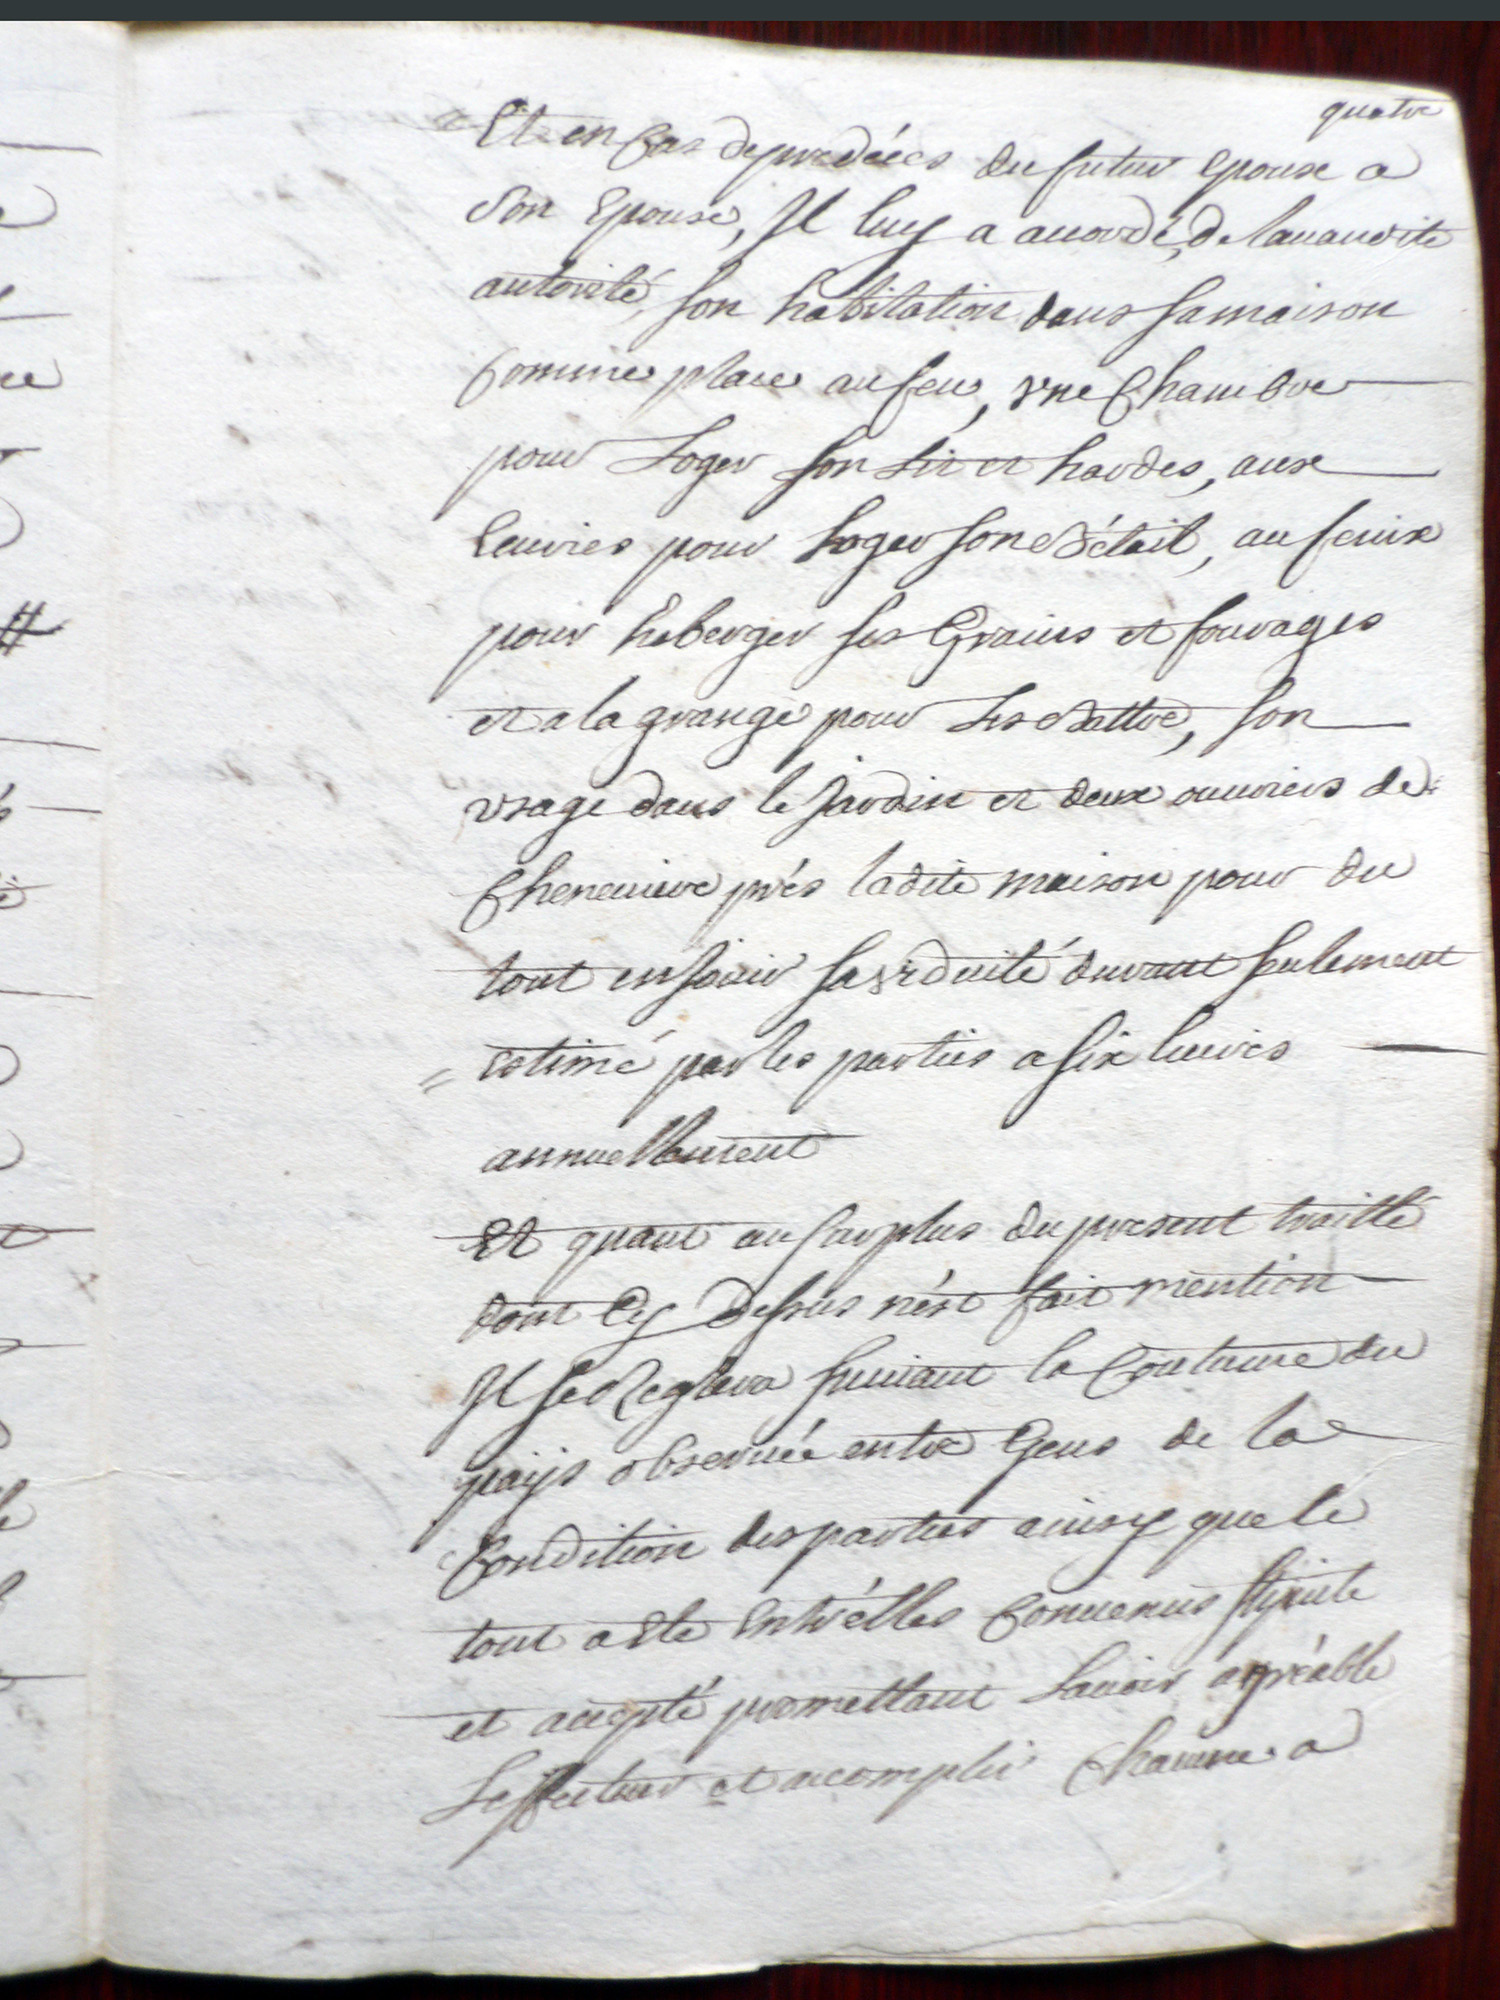 quatre
Et en Cas depredécès du futur Epoux a
Son Epouse, Il luy a accordé, de lauandite
autorité, son habitation dans sa maison
Comme place au feu, vne Chambre
pour Loger son Lit et hardes, aux
Ecuries pour Loger son Bétail, au fenix
pour héberger ses Grains et fourages
et a la grange pour Les Battre, son
vsage dans le Jardin et deux ouuriers de
Cheneuiere prés ladite maison pour du
tout en Jouir sa viduité durant seulement
estimé par les parties a six liures
annuellement
Et quant au surplus du present traitté
dont Cy dessus n'ést fait mention
Il se Reglera suiuant la Coutume du
païjs obseruée entre Gens de la
Condition des parties ainsy que le
tout a Eté Entr'élles Conuenus stipulé
et accepté promettant Lauoir agréable
Leffectuer et accomplir Chacune a